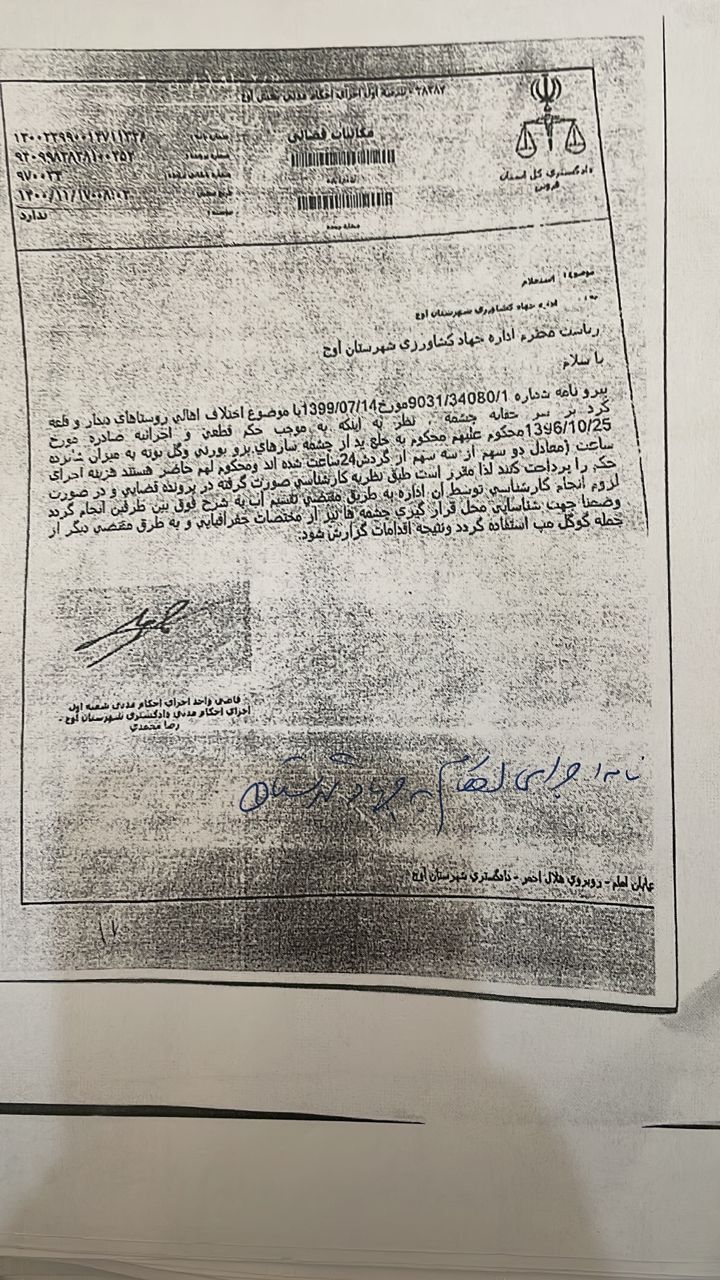 ۲۸۲۸۲ - شعبه اول اجرای احکام مدنی بخش آوج
مکاتبات قضائی
شماره نامه :
شماره پرونده :
۹۷۰۰۳۴
ندارد
پیوست :
دادگستری کل استان
قزوین
موضوع: استعلام
اداره جهاد کشاورزی شهرستان آوج
ریاست محترم اداره جهاد کشاورزی شهرستان آوج
با سلام
پیرو نامه شماره 9031/34080/1مورخ1399/07/14با موضوع اختلاف اهالی روستاهای دیدار و قلعه
کرد بر سر حقابه چشمه ، نظر به اینکه به موجب حکم قطعی و اجرائیه صادره مورخ
1396/10/25محکوم علیهم محکوم به خلع ید از چشمه سارهای برو بورنی وگل بوته به میزان شانزده
ساعت (معادل دو سهم از سه سهم از گردش24ساعت شده اند ومحکوم لهم حاضر هستند هزینه اجرای
حکم را پرداخت کنند لذا مقرر است طبق نظریه کارشناسی صورت گرفته در پرونده قضایی و در صورت
لزوم انجام کارشناسی توسط آن اداره به طریق مقتضی تقسیم آب به شرح فوق بین طرفین انجام گردد
وضمنا جهت شناسایی محل قرار گیری چشمه ها نیز از مختصات جغرافیایی و به طرق مقتضی دیگر از
جمله گوگل مپ استفاده گردد ونتیجه اقدامات گزارش شود.
قاضی واحد اجرای احکام مدنی شعبه اول
اجرای احکام مدنی دادگستری شهرستان آوج -
رضا محمدی
نامه اجرای احکام به جهاد شهرستان
خیابان امام - روبروی هلال احمر - دادگستری شهرستان آوج